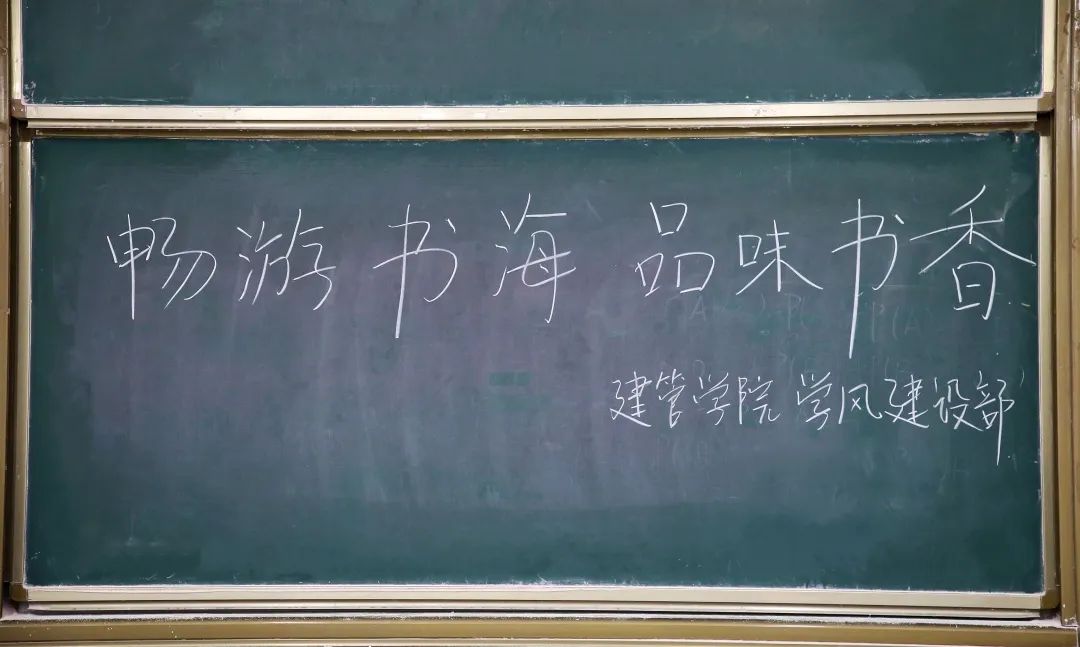 畅游书海 品味书香
建管学院 学风建设部